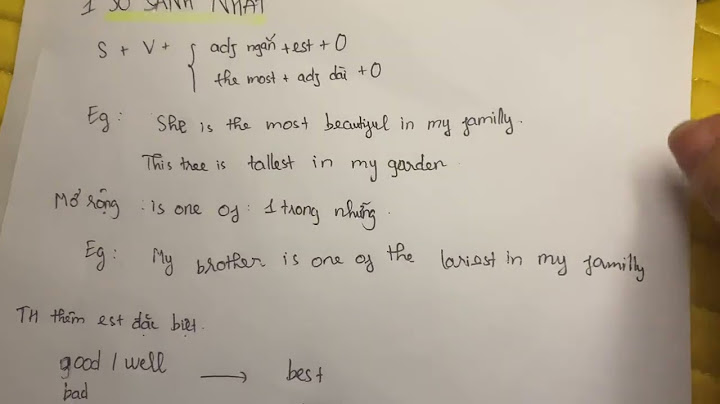 1 SO SÁNH NHẤT
S + V + { adj ngắn + est + O
the most + adj dài + O
Eg : She is the most beautiful in my familly.
This tree is tallest in my garden
Mở rộng : is one of : 1 trong những.
Eg: My brother is one of the lariest in my familly
TH thêm est đặc biệt.
good / well → best
bad